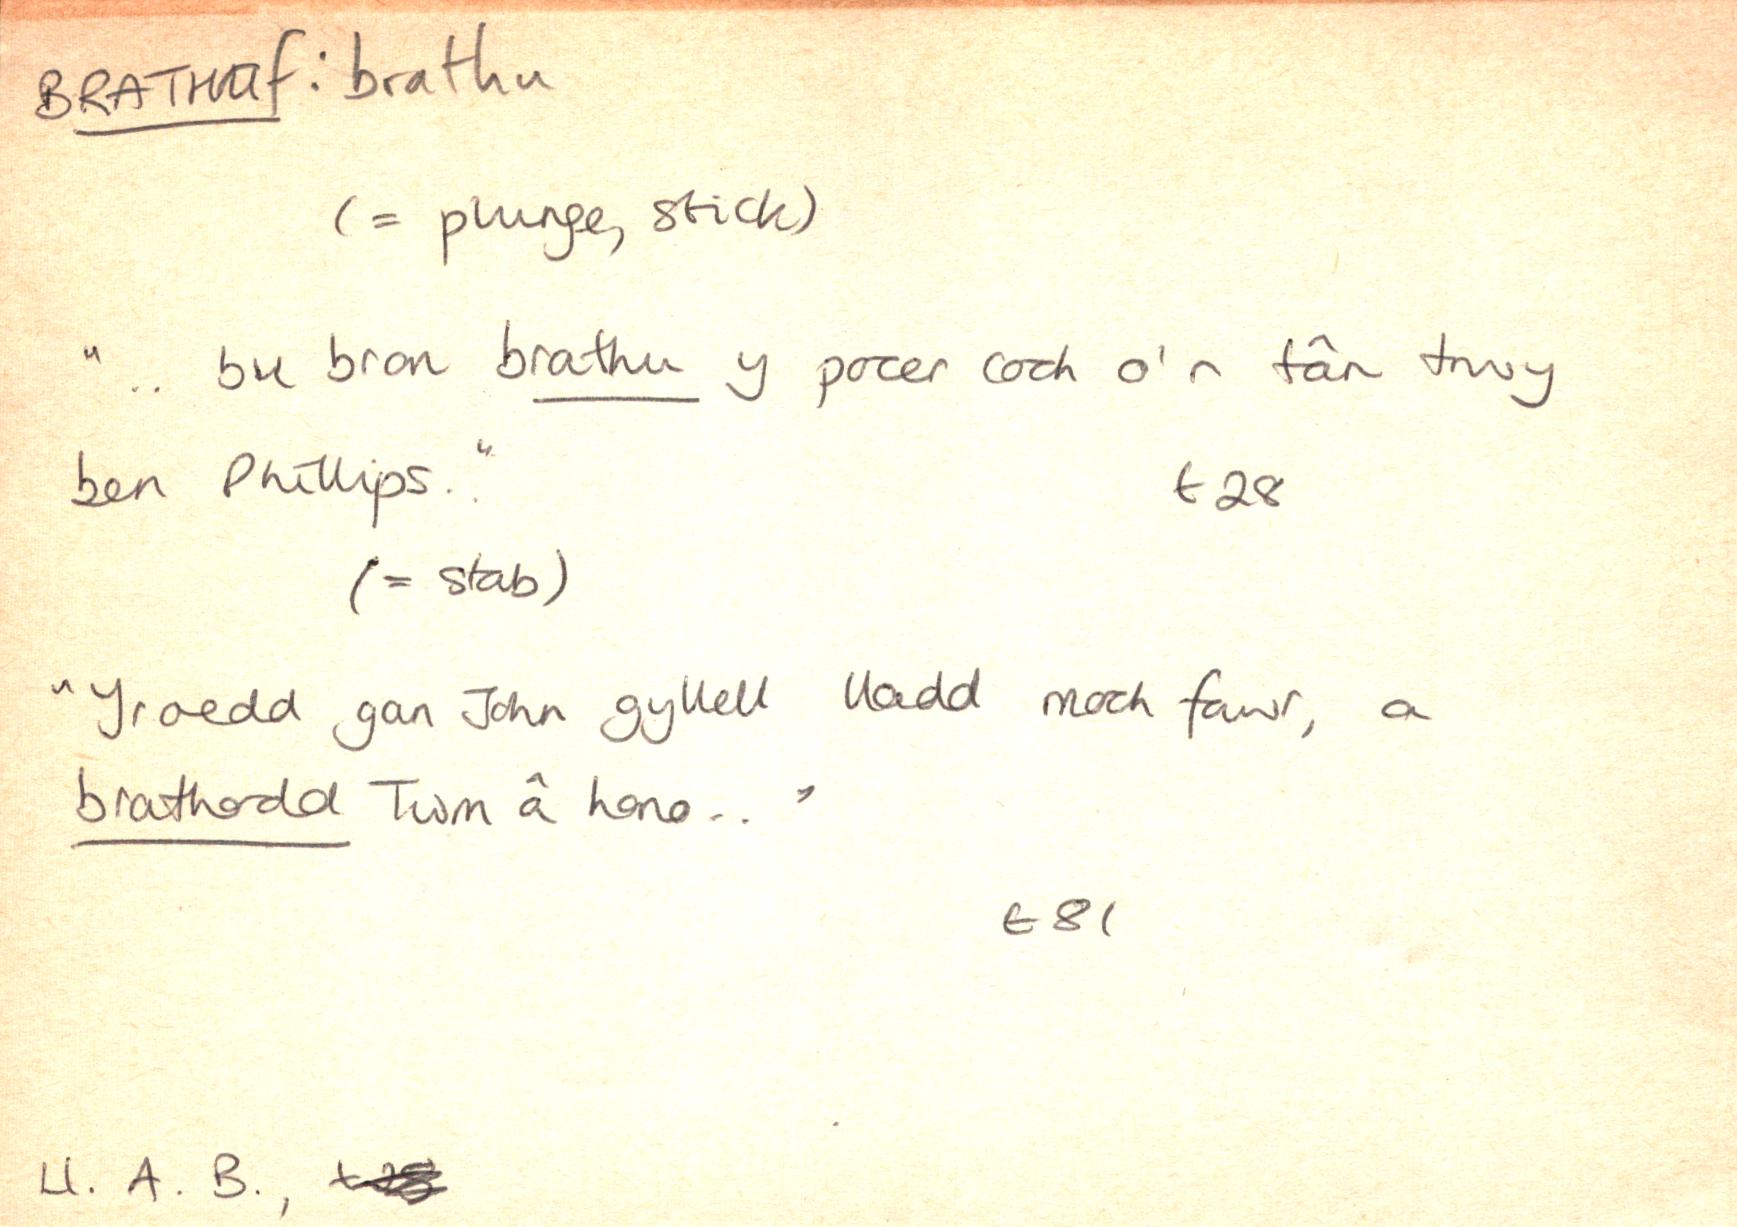 BRATHAf: brathu
(= plunge, stick)
".. bu bron brathu y pocer coch o'r tân trwy
ben Phillips.."
t 28
(= stab)
"Yroedd gan John gyllell lladd moch fawr, a
brathodd Twm â hono.."
t 81
Ll. A. B.,